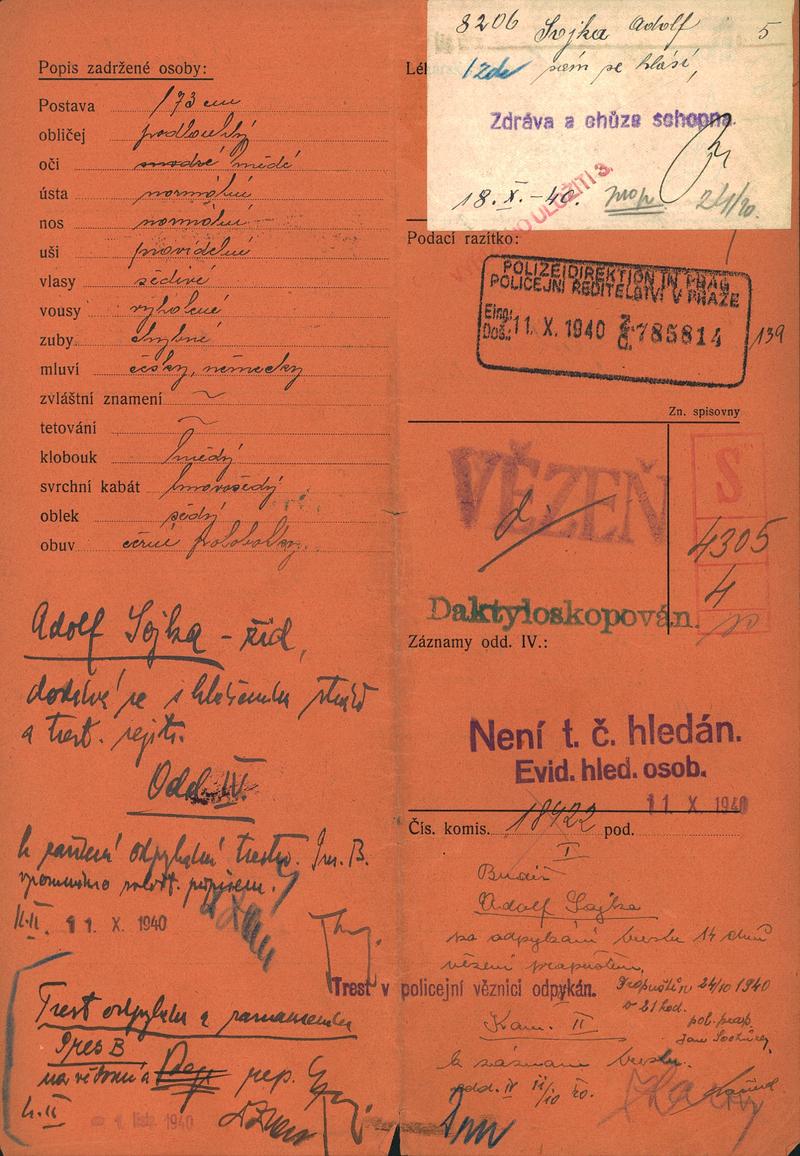 Popis zadržené osoby:
Postava 173 cm
obličej podlouhlý
oči modré hnědé
ústa normální
nos normální
uši pravidelné
vlasy šedivé
vousy vyholené
zuby chybné
mluví česky, německy
zvláštní znamení ~
tetování ~
klobouk hnědý
svrchní kabát tmavošedý
oblek šedý
obuv černé polobotky.
Adolf Sojka – žid,
dodává se s hlášením
a trest. rejstř.
Odd. IV.
k odpykání trestu. Pres. B.
11. X 1940
Trest odpykán a
Pres B
na vědomí a
k. II
1. list. 1940
8206 Sojka Adolf 5
sám se hlásí,
Zdráva a chůze schopna.
18. X. – 40. prop. 24/10.
Lé
ULOŽITI 3.
Podací razítko:
POLIZEIDIREKTION IN PRAG
POLICEJNÍ ŘEDITELSTVÍ V PRAZE
Eing.:
Doš.: 11. X. 1940 785814
139
Zn. spisovny
VĚZEŇ
S
4305
4
Daktyloskopován.
Záznamy odd. IV.:
Není t. č. hledán.
Evid. hled. osob.
11. X 1940
Čís. komis. 18422 pod.
I
Budiž
Adolf Sojka
po odpykání trestu 14 dnů
vězení propuštěn.
Trest v policejní věznici odpykán.
Propuštěn 24/10 1940
v 21 hod.
pol. prap.
Kom. II
k záznamu trestu.
odd. IV 11/10 40.